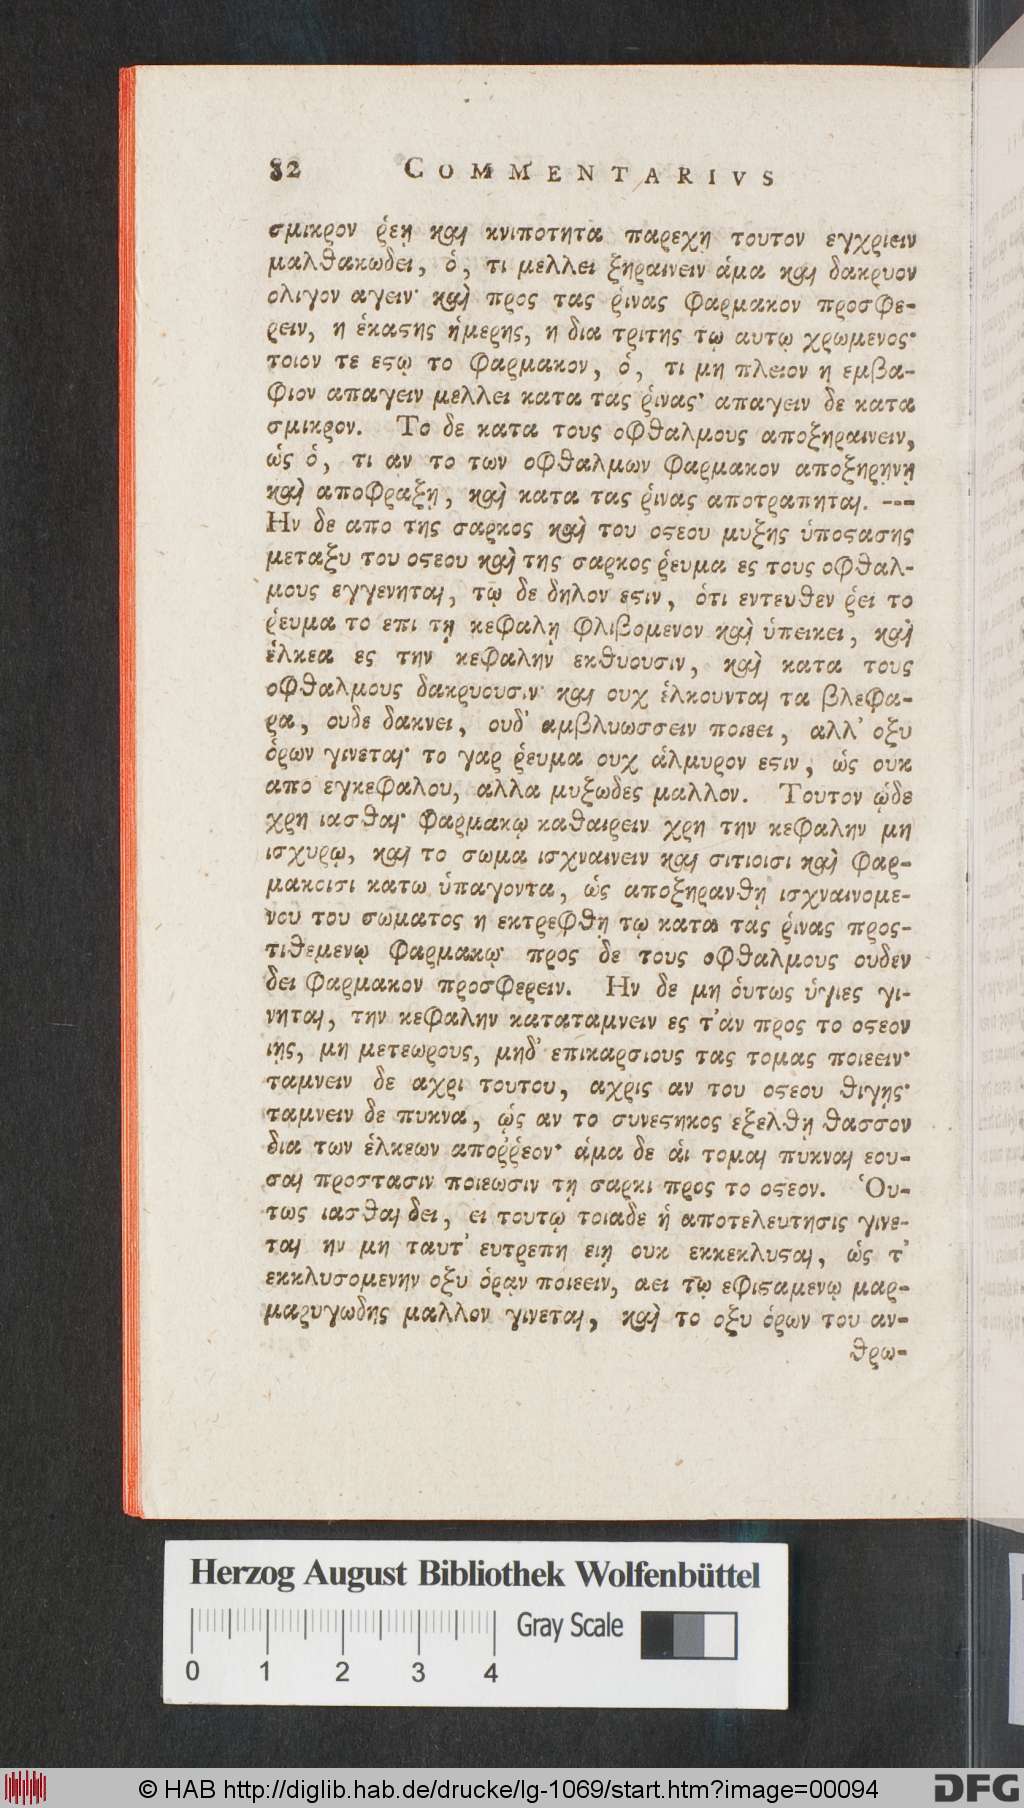 82 COMMENTARIVS
σμικρον ῥεῃ και κνιποτητα παρεχῃ τουτον εγχριειν
μαλθακωδει, ὁ, τι μελλει ξηραινειν ἁμα και δακρυον
ολιγον αγειν· καὶ προς τας ῥινας φαρμακον προσφε-
ρειν, η ἑκαϛης ἡμερης, η δια τριτης τῳ αυτῳ χρωμενος·
τοιον τε εϛω το φαρμακον, ὁ, τι μη πλειον η εμβα-
φιον απαγειν μελλει κατα τας ῥινας· απαγειν δε κατα
σμικρον. Το δε κατα τους οφθαλμους αποξηραινειν,
ὡς ὁ, τι αν το των οφθαλμων φαρμακον αποξηρῃνῃ
καὶ αποφραξῃ, καὶ κατα τας ῥινας αποτραπηται. ---
Ην δε απο της σαρκος καὶ του οϛεου μυξης ὑποϛασης
μεταξυ του οϛεου καὶ της σαρκος ῥευμα ες τους οφθαλ-
μους εγγενηται, τῳ δε δηλον εϛιν, ὁτι εντευθεν ῥει το
ῥευμα το επι τῃ κεφαλῃ φλιβομενον καὶ ὑπεικει, καὶ
ἑλκεα ες την κεφαλην εκθυουσιν, καὶ κατα τους
οφθαλμους δακρυουσιν· και ουχ ἑλκουνται τα βλεφα-
ρα, ουδε δακνει, ουδ' αμβλυωσσειν ποιεει, αλλ' οξυ
ὁρων γινεται· το γαρ ῥευμα ουχ ἁλμυρον εϛιν, ὡς ουκ
απο εγκεφαλου, αλλα μυξωδες μαλλον. Τουτον ᾡδε
χρη ιασθαι· φαρμακῳ καθαιρειν χρη την κεφαλην μη
ισχυρῳ, και το σωμα ισχναινειν και σιτιοισι καὶ φαρ-
μακοισι κατω ὑπαγοντα, ὡς αποξηρανθῃ ισχναινομε-
νου του σωματος η εκτρεφθῃ τῳ κατα τας ῥινας προς-
τιθεμενῳ φαρμακῳ· προς δε τους οφθαλμους ουδεν
δει φαρμακον προσφερειν. Ην δε μη ὁυτως ὑγιες γι-
νηται, την κεφαλην καταταμνειν ες τ'αν προς το οϛεον
ιῃς, μη μετεωρους, μηδ' επικαρσιους τας τομας ποιεειν·
ταμνειν δε αχρι τουτου, αχρις αν του οϛεου θιγῃς·
ταμνειν δε πυκνα, ᾡς αν το συνεϛηκος εξελθῃ θασσον
δια των ἑλκεων αποῤῥεον· ἁμα δε ἁι τομαι πυκναι εου-
σαι προστασιν ποιεωσιν τῃ σαρκι προς το οϛεον. Ὁυ-
τως ιασθαι δει, ει τουτῳ τοιαδε ἡ αποτελευτησις γινε-
ται ην μη ταυτ' ευτρεπη ειῃ ουκ εκκεκλυϛαι, ὡς τ'
εκκλυσομενην οξυ ὁρᾳν ποιεειν, αει τῳ εφιϛαμενῳ μαρ-
μαρυγωδης μαλλον γινεται, καὶ το οξυ ὁρων του αν-
θρω-
Herzog August Bibliothek Wolfenbüttel
Gray Scale
0 1 2 3 4
© HAB http://diglib.hab.de/drucke/lg-1069/start.htm?image=00094
DFG